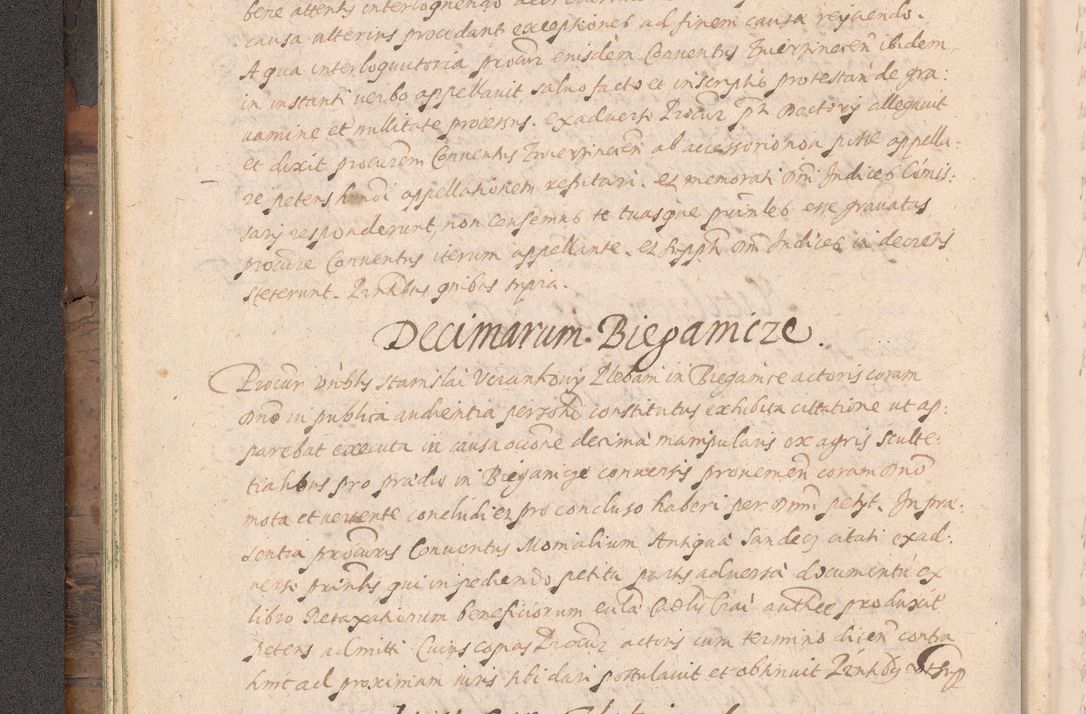 bene attentis interloquendo
causa alterius procedant exceptiones ad finem causa reijciendo.
A qua interloquutoria procur eiusdem Conventus ibidem
in instanti verbo appellavit, salvo facto et in scriptis protestan de gra:
vamine et nullitate processus. ex adverso Procur pti Doctorij allegavit
et dixit procurem Conventus ab accessorio non posse appella:
re petens hmoi appellationem refutari. et memorati Dni Judices Comis:
sarij responderunt, non consemus te tuasque prinles esse gravatas
procure Conventus iterum appellante. et supph Dni Judices in decretis
steterunt. Pntibus quibus supra.
Decimarum Biegamicze.
Procur Vnblis Stanislai Plebani in Biegamice actoris coram
Dno in publica audientia personr constitutus exhibita cittatione ut ap:
parebat executa in causa ocione decima manipularis ex agris sculte:
tialibus pro prædio in Biegamicze conversis provenien coram Dno
mota et vertente concludi et pro concluso haberi per Dnm petijt. In præ:
sentia procuris Conventus Monialium Antiqua Sandecz citati ex ad:
verso prinlis qui impediendo petita partis adversa documentu ex
libro Retaxationum beneficiorum eccla Cathlis Crac authce produxit
petens admitti Cuius copias Procur actoris cum termino dicen contra
hinc ad proximum iuris sibi dari postulavit et obtinuit Pntibus ut supra